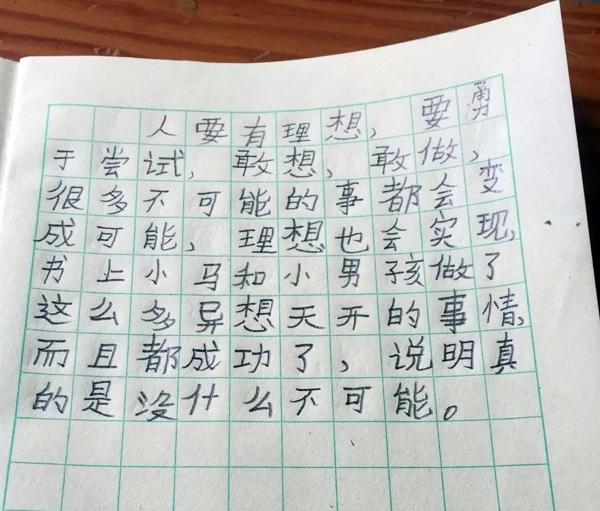 人要有理想，要勇
于尝试，敢想，敢做，
很多不可能的事都会变
成可能，理想也会实现，
书上小马和小男孩做了
这么多异想天开的事情，
而且都成功了，说明真
的是没什么不可能。